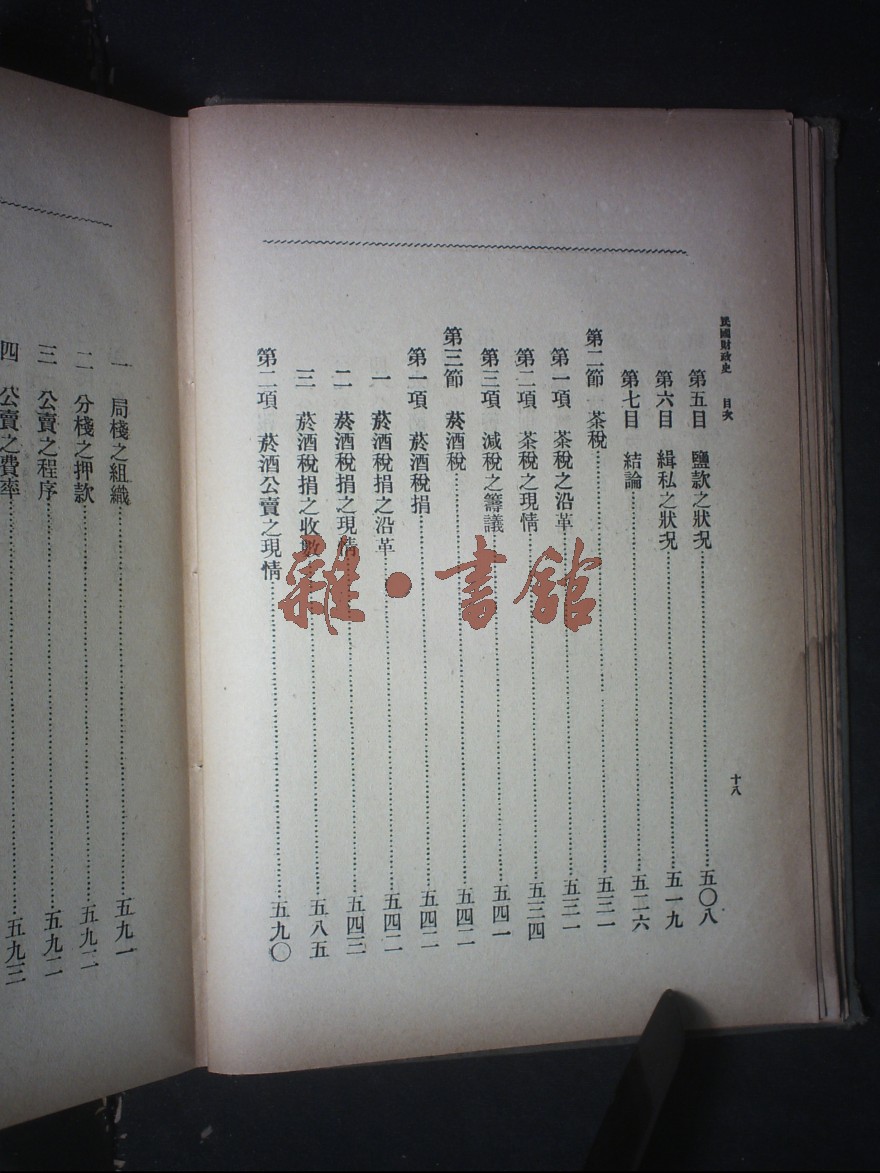 民國財政史 目次
第五目 鹽款之狀況 五〇八
第六目 緝私之狀況 五一九
第七目 結論 五二六
第二節 茶稅 五三一
第一項 茶稅之沿革 五三一
第二項 茶稅之現情 五三四
第三項 減稅之籌議 五四一
第三節 菸酒稅 五四二
第一項 菸酒稅捐 五四二
一 菸酒稅捐之沿革 五四二
二 菸酒稅捐之現情 五四三
三 菸酒稅捐之收數 五八五
第二項 菸酒公賣之現情 五九〇
十八
一 局棧之組織 五九一
二 分棧之押款 五九二
三 公賣之程序 五九二
四 公賣之費率 五九三
雜·書館